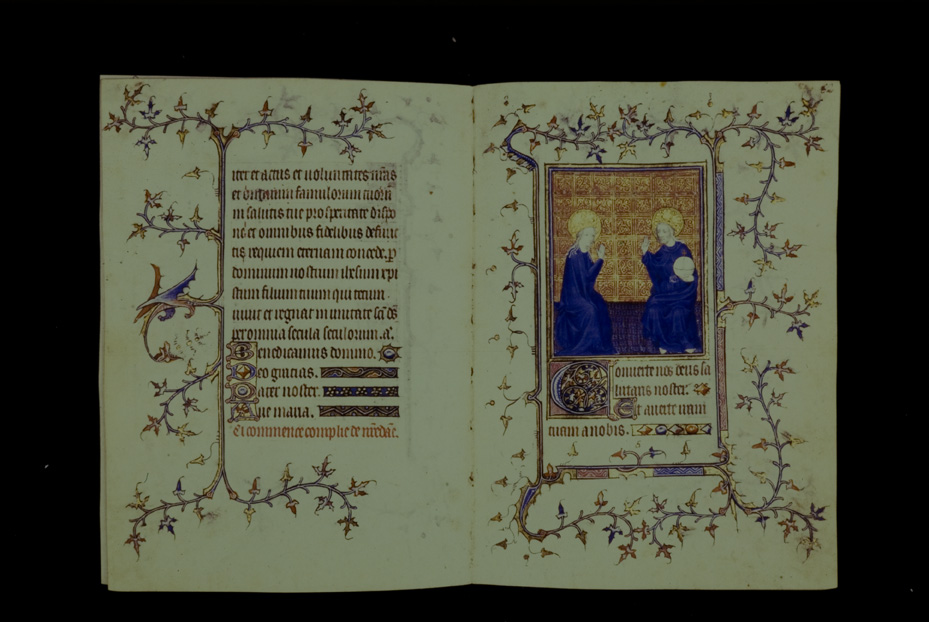 iter et actus et uoluntates nr̄as
et omnium famulorum tuorū
in salutis tue prosperitate dispo
ne et omnibus fidelibus defunc
tis requiem eternam concede. p
dominum nostrum ihesum xpi
stum filium tuum qui tecum
uiuit et regnat in unitate sc̄i ds̄
per omnia secula seculorum. a.
Benedicamus domino.
Deo gracias.
Pater noster.
Aue maria.
Ci commence complie de nr̄e dāe.
Conuerte nos deus sa
lutaris noster.
Et auerte iram
tuam a nobis.